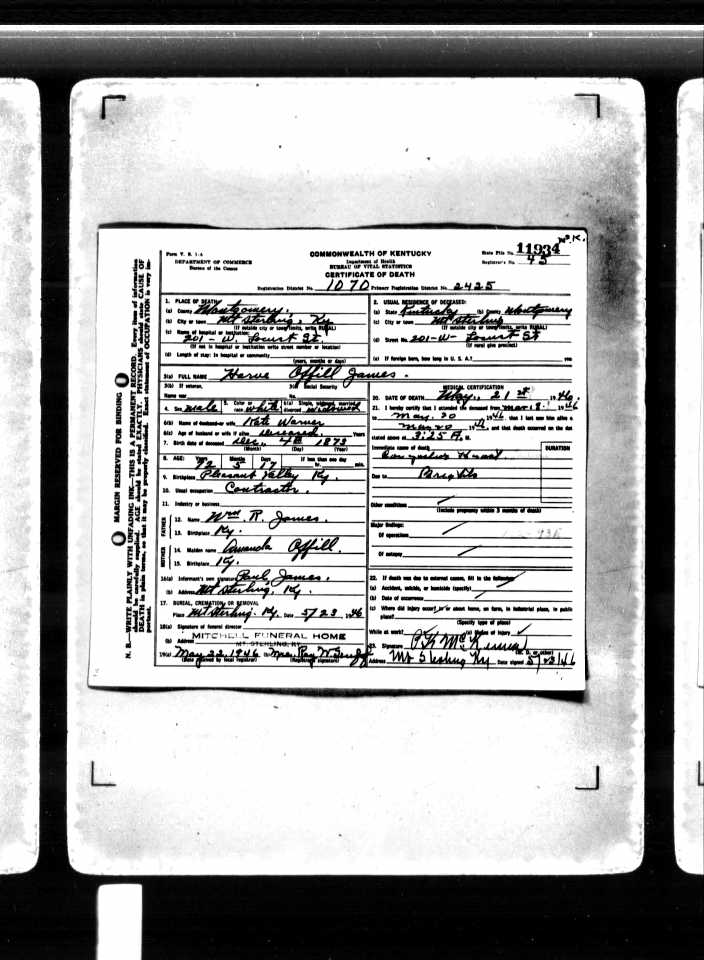 MARGIN RESERVED FOR BINDING
N. B. WRITE PLAINLY WITH UNFADING INK—THIS IS A PERMANENT RECORD. Every item of information
should be carefully supplied. AGE should be stated EXACTLY. PHYSICIANS should state CAUSE OF
DEATH in plain terms, so that it may be properly classified. Exact statement of OCCUPATION is very im-
portant.
Form V. S. 1-A
DEPARTMENT OF COMMERCE
Bureau of the Census
COMMONWEALTH OF KENTUCKY
Department of Health
BUREAU OF VITAL STATISTICS
CERTIFICATE OF DEATH
State File No. 11934
Registrar's No. 45
Registration District No. 1070 Primary Registration District No. 2425
1. PLACE OF DEATH
(a) County Montgomery
(b) City or town Mt Sterling, Ky
(If outside city or town limits, write RURAL)
(c) Name of hospital or institution:
201 - W. Locust St.
(If not in hospital or institution write street number or location)
(d) Length of stay: In hospital or community
(years, months or days)
2. USUAL RESIDENCE OF DECEASED:
(a) State Kentucky (b) County Montgomery
(c) City or town Mt Sterling
(If outside city or town limits, write RURAL)
(d) Street No. 201-W- Locust St
(If rural give precinct)
(e) If foreign born, how long in U. S. A.? years
3(a) FULL NAME Harve Offill James.
3(b) If veteran, 3(c) Social Security
Name war No.
4. Sex male 5. Color or race white 6(a) Single, widowed, married, divorced widowed
6(b) Name of husband or wife Kate Warner
6(c) Age of husband or wife if alive deceased Years
7. Birth date of deceased Dec. 4th 1873
(Month) (Day) (Year)
8. AGE: Years Months Days If less than one day
72 5 17 hr. min.
9. Birthplace Pleasant Valley Ky.
10. Usual occupation Contractor.
11. Industry or business
FATHER
12. Name Wm. R. James.
13. Birthplace Ky.
MOTHER
14. Maiden name Amanda Offill.
15. Birthplace Ky.
16(a) Informant's own signature Paul James.
(b) Address Mt Sterling, Ky.
17. BURIAL, CREMATION OR REMOVAL
Place Mt Sterling. Ky. Date 5/23 1946
18(a) Signature of funeral director
(b) Address MITCHELL FUNERAL HOME
MT. STERLING, KY.
19(a) May 22, 1946 (b) Mrs. Ray W.
(Date received by local registrar) (Registrar's signature)
MEDICAL CERTIFICATION
20. DATE OF DEATH May, 21st 1946.
21. I hereby certify that I attended the deceased from Mar 18 1946
to May. 20 1946, that I last saw him alive on
May 20 , and that death occurred on the date
stated above at 3:25 A. M.
Immediate cause of death DURATION
Due to
Other conditions
(Include pregnancy within 3 months of death)
Major findings:
Of operations
Of autopsy
22. If death was due to external causes, fill in the following:
(a) Accident, suicide, or homicide (specify)
(b) Date of occurrence
(c) Where did injury occur? In or about home, on farm, in industrial place, in public
place?
(Specify type of place)
While at work? (e) Means of injury
23. Signature
(M. D. or other)
Address Mt Sterling Ky Date signed 5/23/46